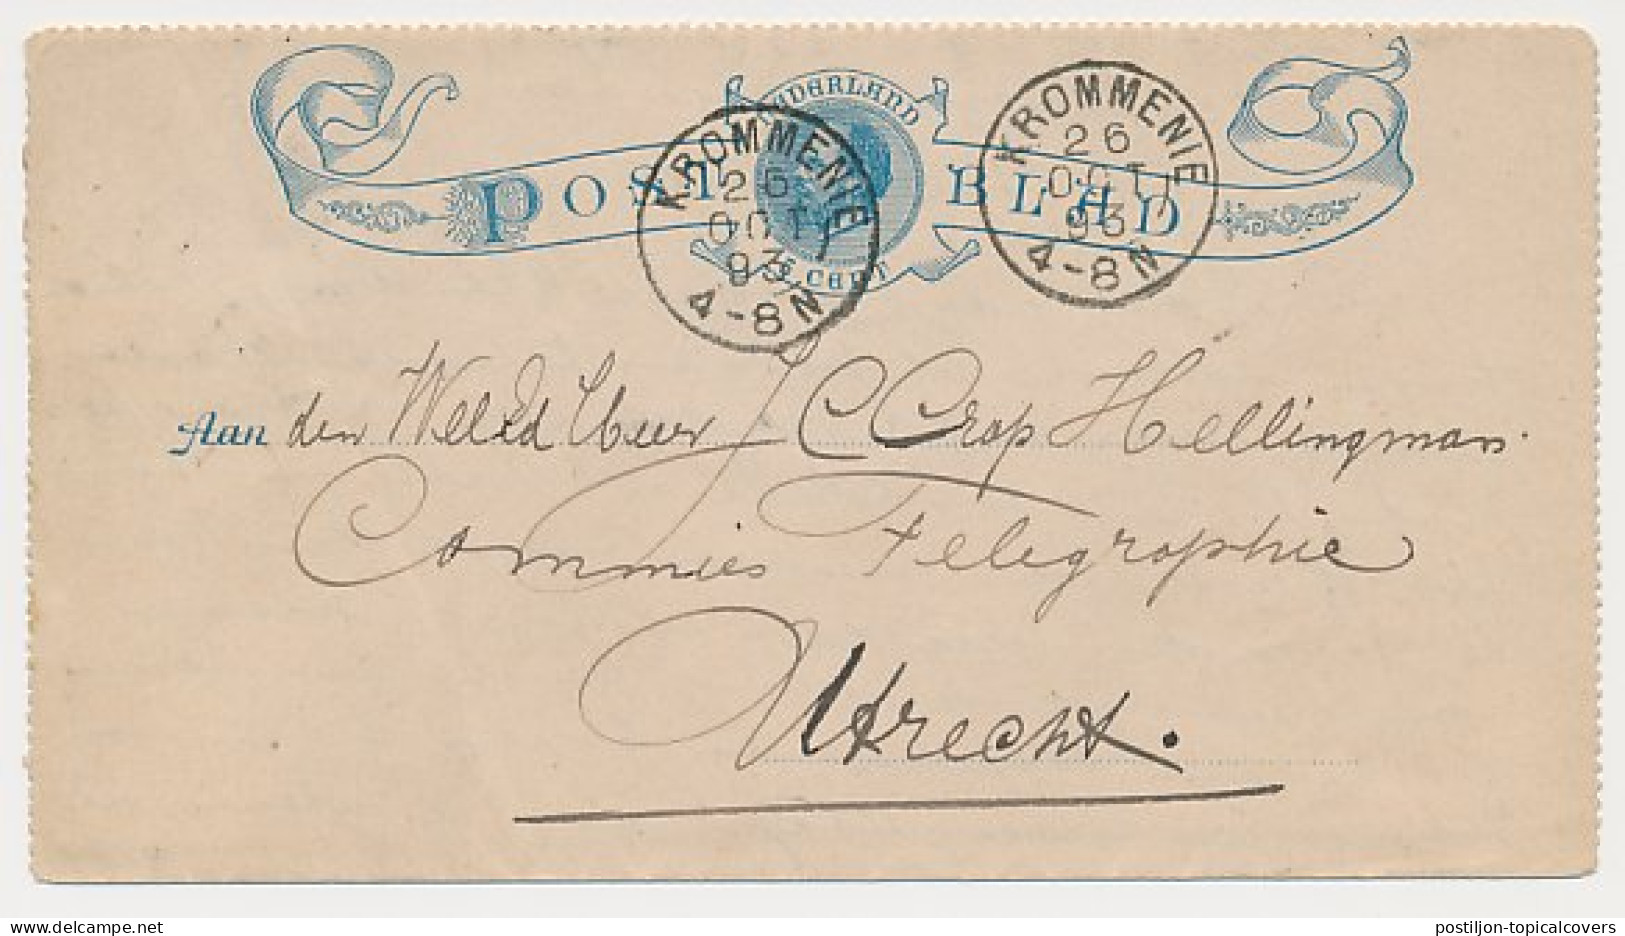 NEDERLAND
POSTBLAD
5 CENT
KROMMENIE
26
OCT
93
4-8N
KROMMENIE
26
OCT
93
4-8N
Aan den Wel Ed Heer J C C Crap Hellingman
Commies Telegraphie
Utrecht.
© delcampe.net
postiljon-topicalcovers